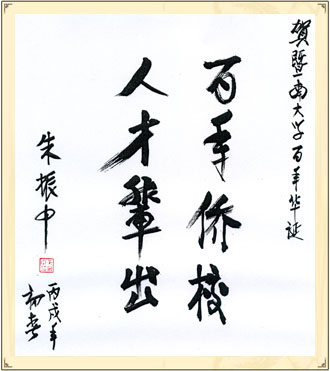 贺暨南大学百年华诞
百年侨校
人才辈出
朱振中
丙戌年
初春